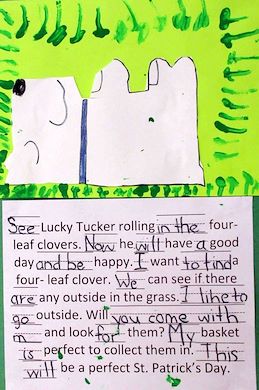 See Lucky Tucker rolling in the four-
leaf clovers. Now he will have a good
day and be happy. I want to find a
four- leaf clover. We can see if there
are any outside in the grass. I like to
go outside. Will you come with
m and look for them? My basket
is perfect to collect them in. This
will be a perfect St. Patrick's Day.